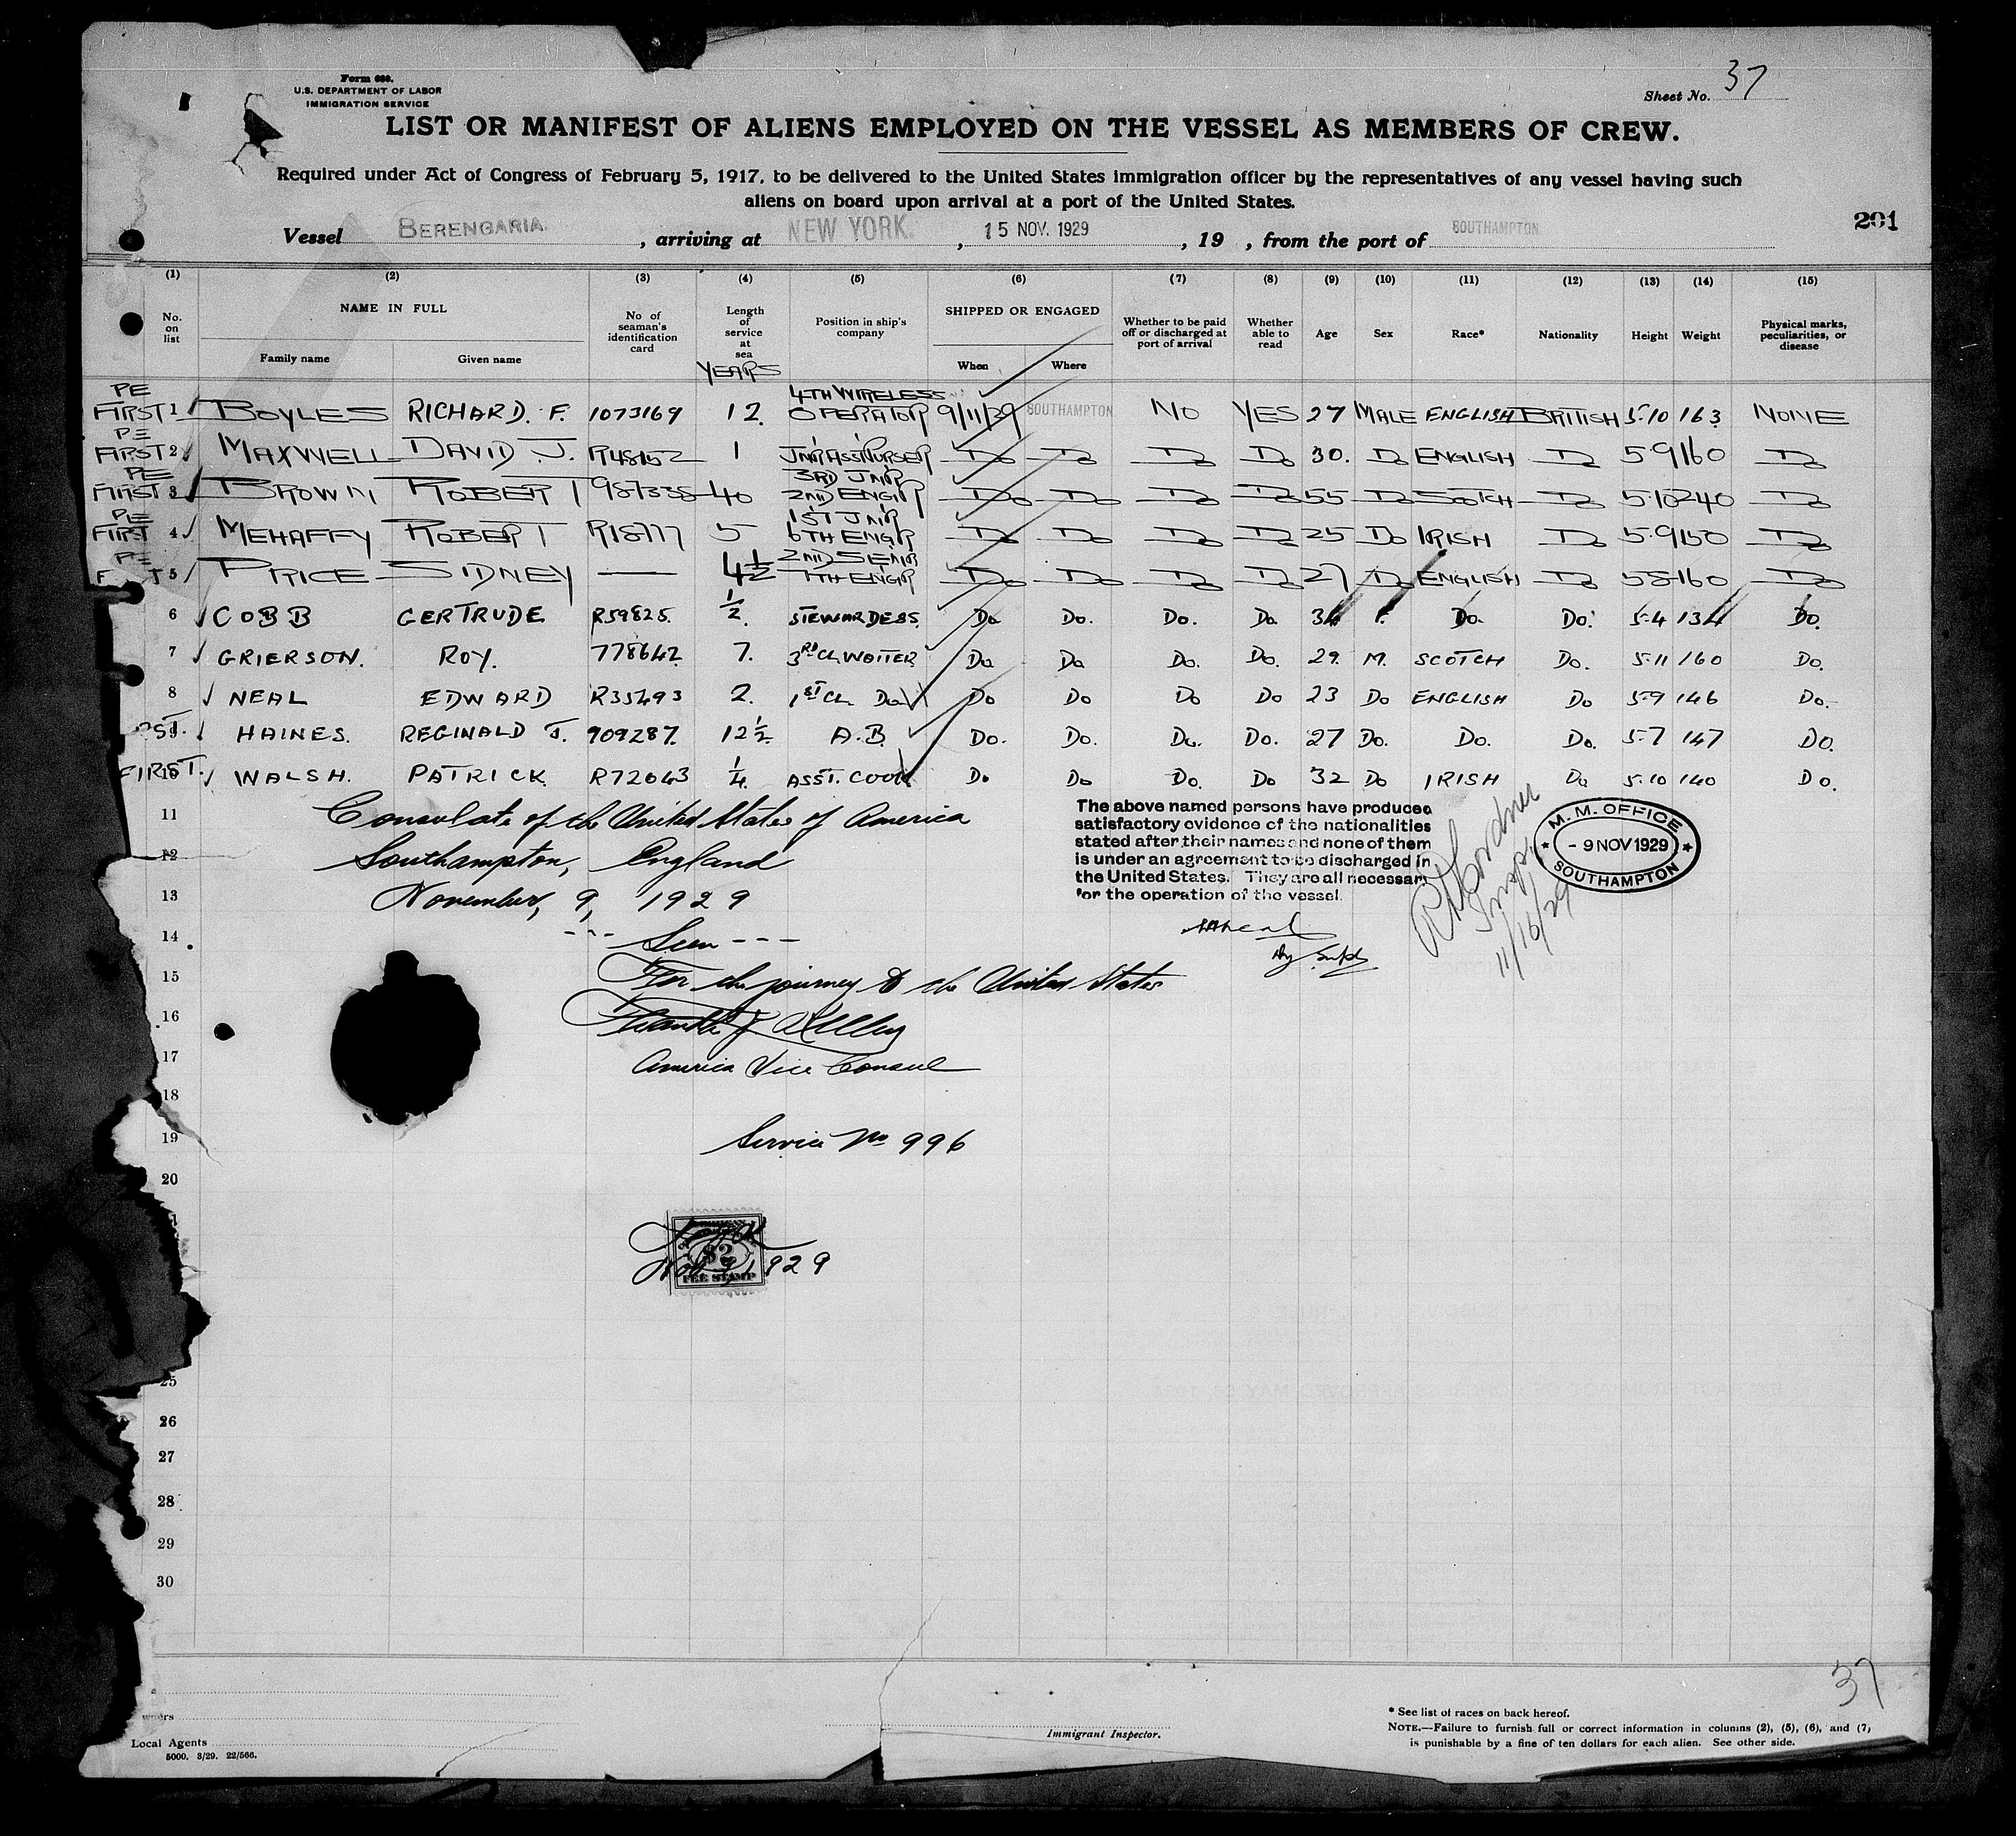 Form 680.
U.S. DEPARTMENT OF LABOR
IMMIGRATION SERVICE
Sheet No. 37
LIST OR MANIFEST OF ALIENS EMPLOYED ON THE VESSEL AS MEMBERS OF CREW.
Required under Act of Congress of February 5, 1917, to be delivered to the United States immigration officer by the representatives of any vessel having such
aliens on board upon arrival at a port of the United States.
201
Vessel BERENGARIA. , arriving at NEW YORK. , 15 NOV. 1929 , 19 , from the port of SOUTHAMPTON
(1) (2) (3) (4) (5) (6) (7) (8) (9) (10) (11) (12) (13) (14) (15)
No. on list NAME IN FULL Family name Given name No of seaman's identification card Length of service at sea YEARS Position in ship's company SHIPPED OR ENGAGED When Where Whether to be paid off or discharged at port of arrival Whether able to read Age Sex Race* Nationality Height Weight Physical marks, peculiarities, or disease
PE FIRST 1 BOYLES RICHARD. F. 1073169 12. 4TH WIRELESS OPERATOR 9/11/29 SOUTHAMPTON NO YES 27 MALE ENGLISH BRITISH 5-10 163 NONE
PE FIRST 2 MAXWELL DAVID J. R48152 1 JNR ASS PURSER Do Do Do Do 30. Do ENGLISH Do 5-9 160 Do
PE FIRST 3 BROWN ROBERT 987338 40 3RD JNR 2ND ENGR Do Do Do Do 55 Do SCOTCH Do 5-10 240 Do
PE FIRST 4 MEHAFFY ROBERT R18777 5 1ST JNR 6TH ENGR Do Do Do Do 25 Do IRISH Do 5-9 150 Do
PE 5 PRICE SIDNEY — 4½ 2ND SENR 7TH ENGR Do Do Do Do 27 Do ENGLISH Do 5-8 160 Do
6 COBB GERTRUDE R59825. ½. STEWARDESS. Do Do. Do. Do 34 F. Do. Do. 5-4 134 Do.
7 GRIERSON. ROY. 778642 7. 3RD CL WAITER Do Do Do. Do. 29. M. SCOTCH Do. 5-11 160 Do.
8 NEAL EDWARD R35493 2. 1ST CL Do Do Do Do Do 23 Do ENGLISH Do 5-9 146 Do.
9 HAINES. REGINALD J. 909287. 12½ A.B. Do. Do. Do. Do. 27 Do. Do. Do. 5-7 147 Do.
FIRST. 10 WALSH. PATRICK R72043 ¼ ASST. COOK Do Do Do. Do 32 Do IRISH Do 5-10 140 Do.
11
Consulate of the United States of America
12
Southampton, England
13
November, 9, 1929
14
--- Seen ---
15
For the journey to the United States
16
17
America Vice Consul
18
19
Service No 996
20
The above named persons have produced
satisfactory evidence of the nationalities
stated after their names and none of them
is under an agreement to be discharged in
the United States. They are all necessary
for the operation of the vessel.
M.M. OFFICE
- 9 NOV 1929
SOUTHAMPTON
Insp.
11/16/29
$2
FEE STAMP
Nov 9, 1929
25
26
27
28
29
30
37
Local Agents
5000. 3/29. 22/566.
Immigrant Inspector.
* See list of races on back hereof.
NOTE.—Failure to furnish full or correct information in columns (2), (5), (6), and (7)
is punishable by a fine of ten dollars for each alien. See other side.